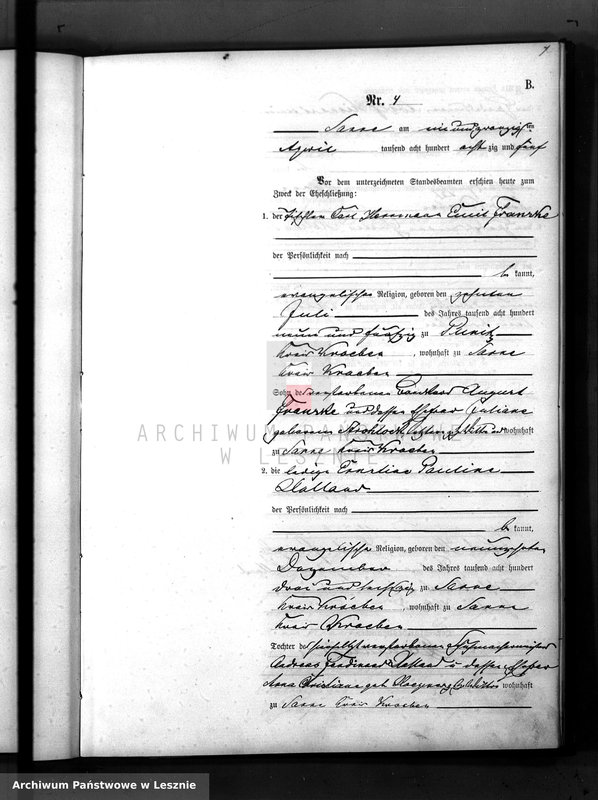 B.
Nr. 4
Sarne am ein und zwanzigsten
April tausend acht hundert acht zig und fünf
Vor dem unterzeichneten Standesbeamten erschien heute zum
Zweck der Eheschließung:
1. der Carl Herrmann Emil Franzke
der Persönlichkeit nach
be kannt,
evangelischer Religion, geboren den zehnten
Juli des Jahres tausend acht hundert
neun und fünfzig zu Punitz
Kreis Kroeben, wohnhaft zu Sarne
Kreis Kroeben
Sohn des verstorbenen August
Franzke und dessen Ehefrau Juliane
geborenen wohnhaft
zu Sarne Kreis Kroeben
2. die ledige Ernestine Pauline
der Persönlichkeit nach
be kannt,
evangelischer Religion, geboren den neunzehnten
Dezember des Jahres tausend acht hundert
drei und sechszig zu Sarne
Kreis Kroeben, wohnhaft zu Sarne
Kreis Kroeben
Tochter des hierselbst verstorbenen Schuhmachermeister
Andreas Ferdinand u dessen Ehefrau
Anna Christiane geb wohnhaft
zu Sarne Kreis Kroeben
ARCHIWUM PAŃSTWOWE
W LESZNIE
Archiwum Państwowe w Lesznie